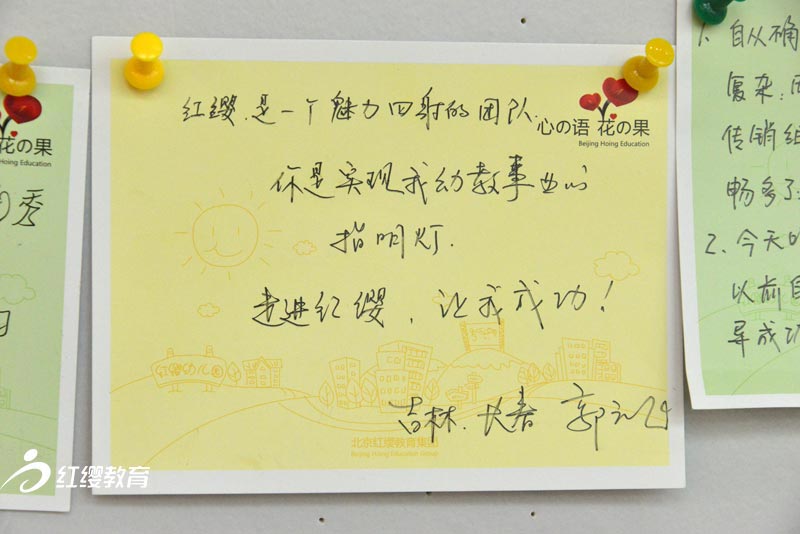 红缨.是一个魅力四射的团队.
心の语 花の果
Beijing Hoing Education
你是实现我幼教事业的
指明灯.
走进红缨，让我成功！
红缨幼儿园
吉林.长春 郭
北京红缨教育集团
Beijing Hoing Education Group
花の果
Hoing Education
秀
习
1、自从确
复杂；
传销组
畅多了
2、今天的
以前自
导成功
红缨教育